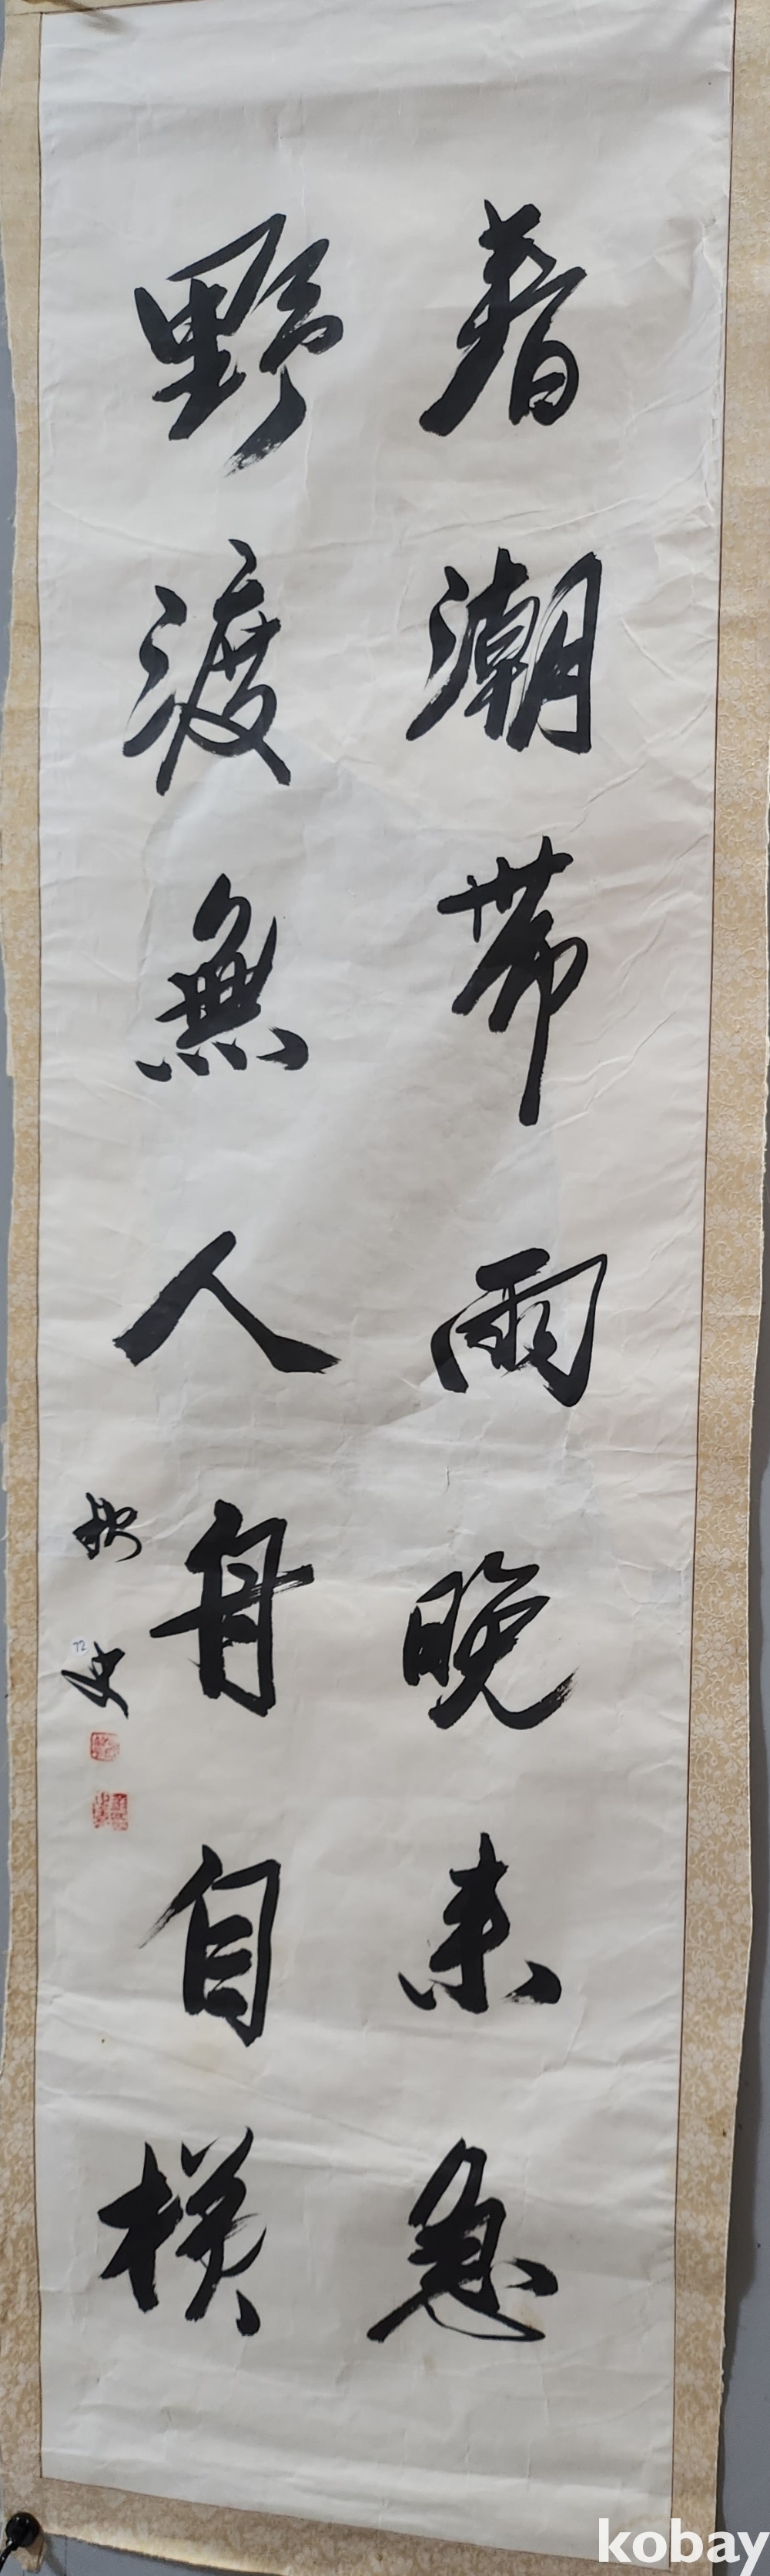 春潮帶雨晚來急
野渡無人舟自橫
史
72
kobay